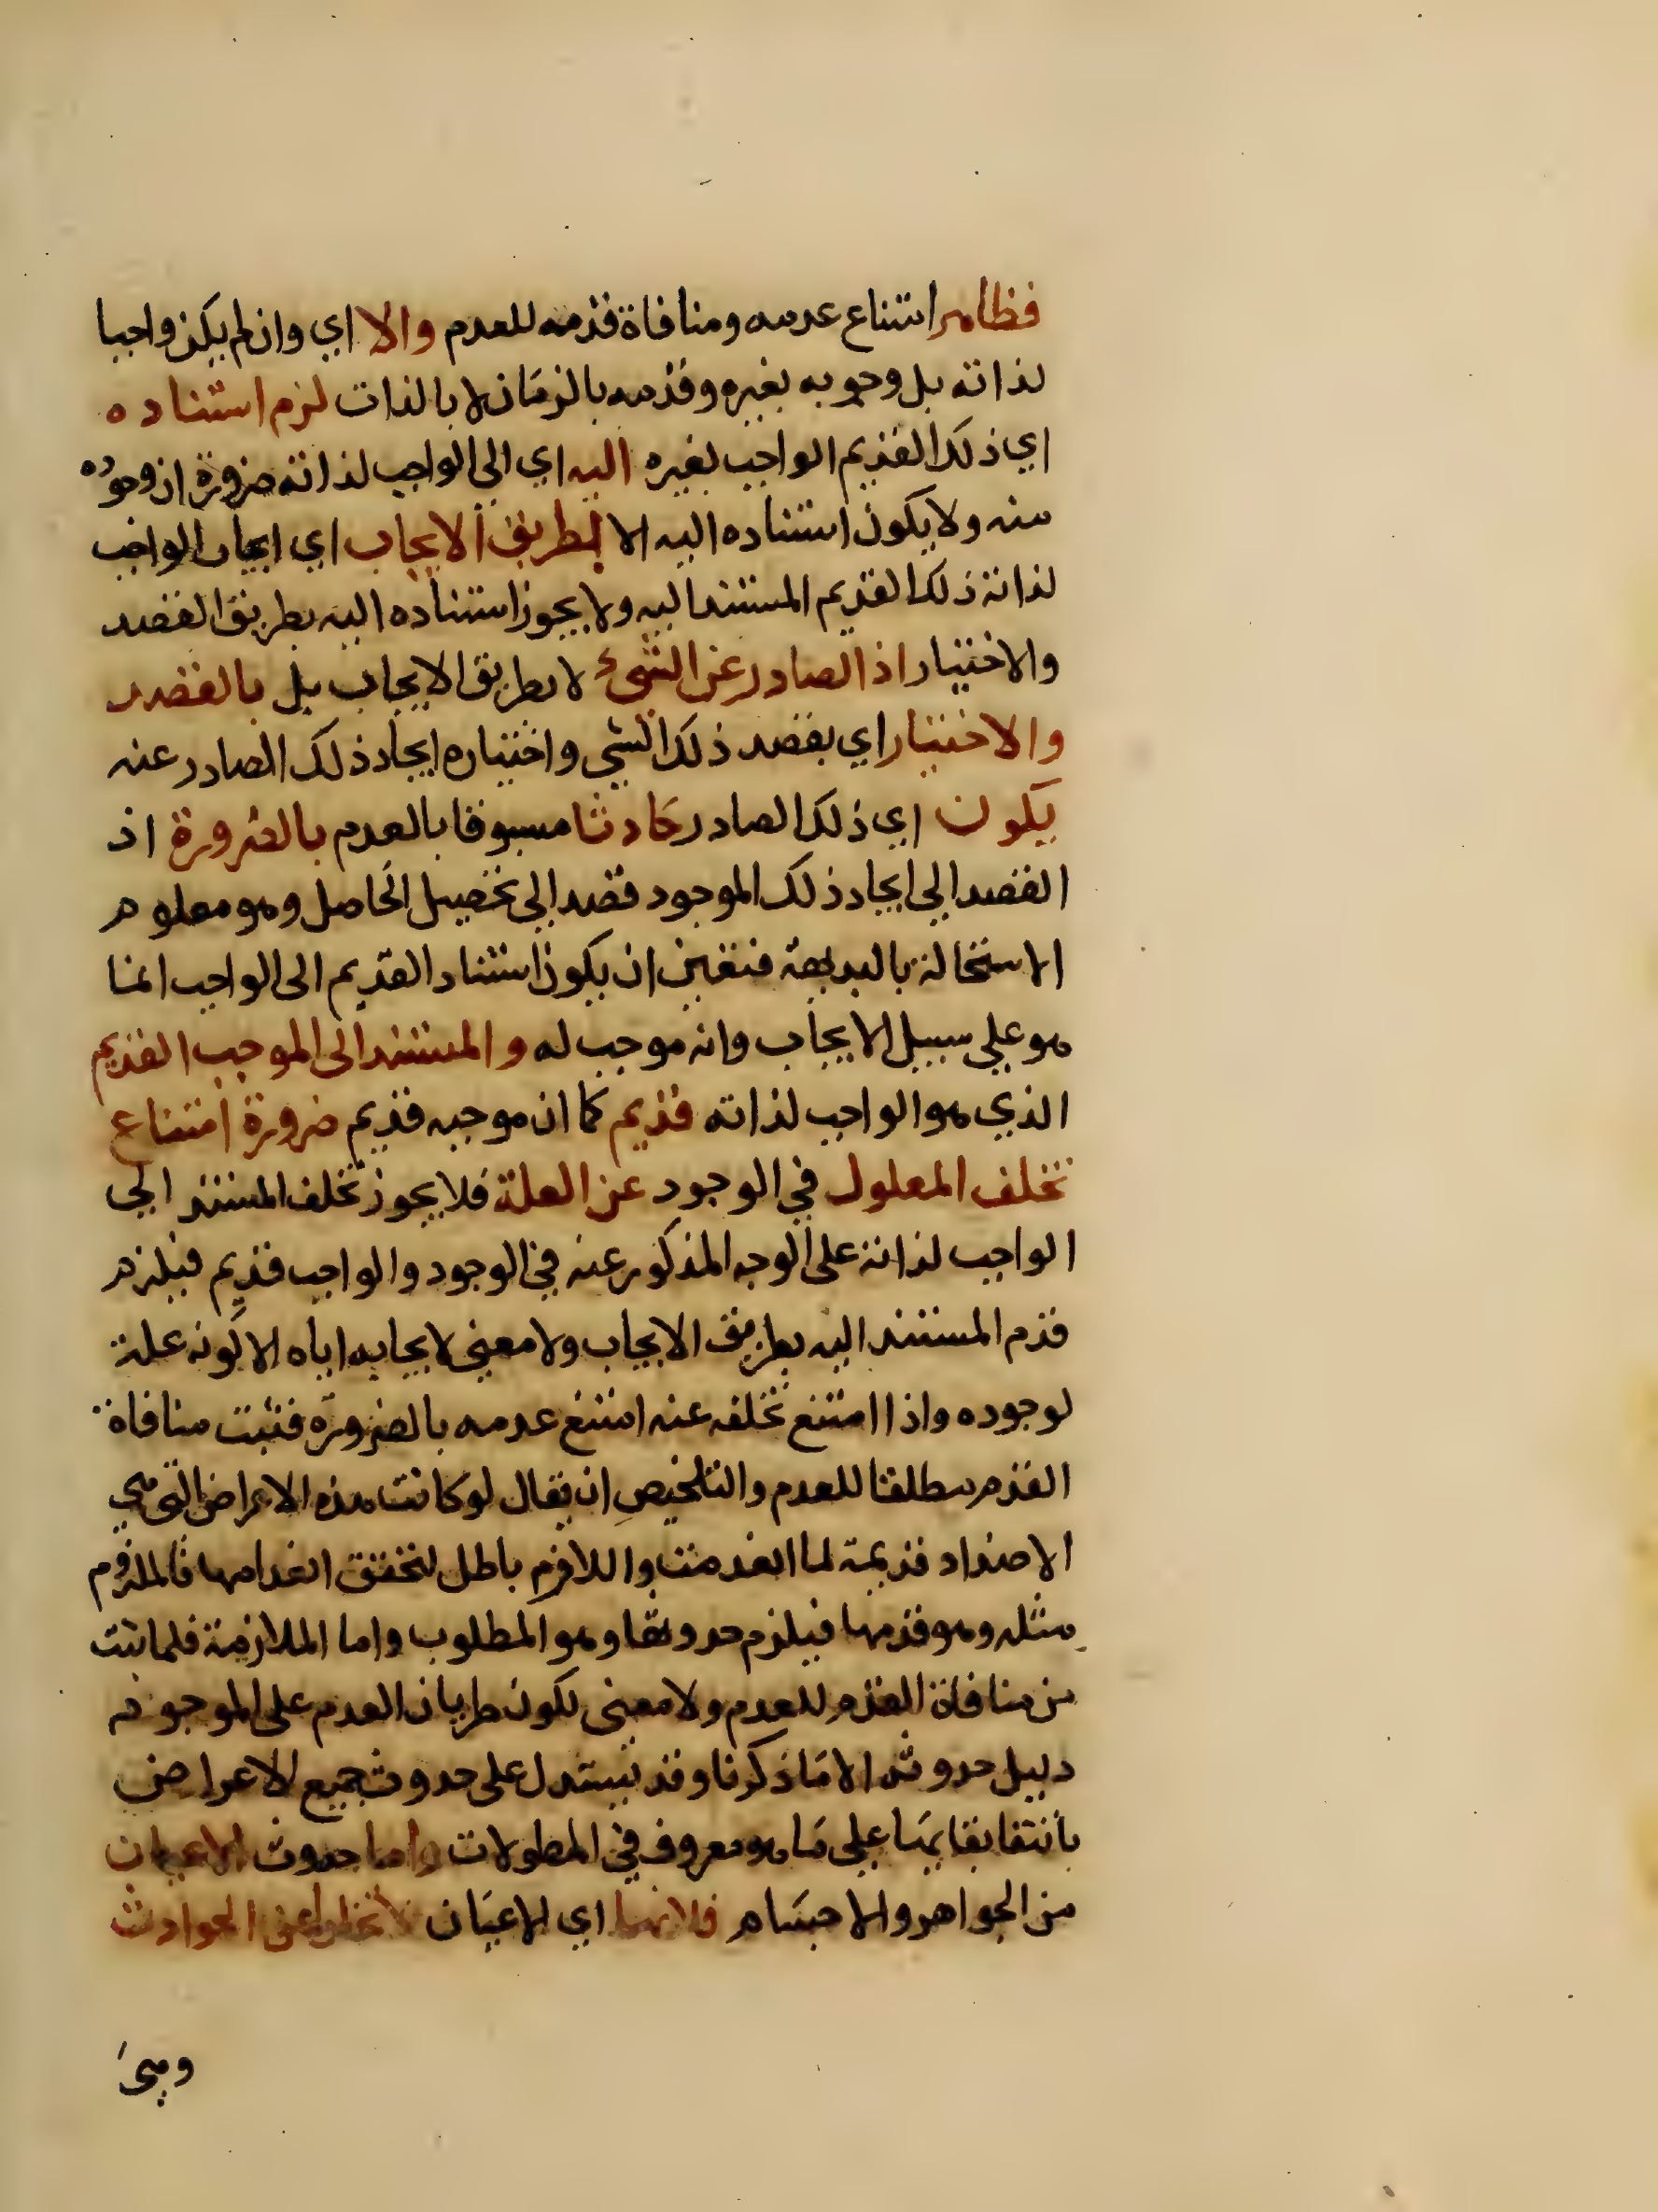 فظاهر امتناع عدمه ومنافاة قدمه للعدم والا اي وان لم يكن واجبا
لذاته بل وجوبه بغيره وقدمه بالزمان لا بالذات لزم استناده
اي ذلك القديم الواجب لغيره اليه اي الى الواجب لذاته ضرورة ان وجوده
منه ولا يكون استناده اليه الا بطريق الايجاب اي ايجاب الواجب
لذاته ذلك القديم المستند اليه ولا يجوز استناده اليه بطريق القصد
والاختيار اذ الصادر عن الشيء لا بطريق الايجاب بل بالقصد
والاختيار اي بقصد ذلك الشي واختياره ايجاد ذلك الصادر عنه
يكون اي ذلك الصادر حادثا مسبوقا بالعدم بالضرورة اذ
القصد الى ايجاد ذلك الموجود قصد الى تحصيل الحاصل وهو معلوم
الاستحالة بالبديهة فتعين ان يكون استناد القديم الى الواجب انما
هو على سبيل الايجاب وانه موجب له والمستند الى الموجب القديم
الذي هو الواجب لذاته قديم كما ان موجبه قديم ضرورة امتناع
تخلف المعلول في الوجود عن العلة فلا يجوز تخلف المستند الى
الواجب لذاته على الوجه المذكور عنه في الوجود والواجب قديم فيلزم
قدم المستند اليه بطريق الايجاب ولا معنى لايجابه اياه الا كونه علة
لوجوده واذا امتنع تخلفه عنه امتنع عدمه بالضرورة فثبت منافاة
القدم مطلقا للعدم والتلخيص ان يقال لو كانت هذه الاعراض التي هي
الاضداد قديمة لما انعدمت واللازم باطل لتحقق انعدامها فالملزوم
مثله وهو قدمها فيلزم حدوثها وهو المطلوب واما الملازمة فلما ثبت
من منافاة القدم للعدم ولا معنى لكون طريان العدم على الموجود
دليل حدوثه الا ما ذكرنا وقد يستدل على حدوث جميع الاعراض
بانتفا بقايها على ما هو معروف في المطولات واما حدوث الاعيان
من الجواهر والاجسام فلانها اي الاعيان لا تخلوا عن الحوادث
وهي